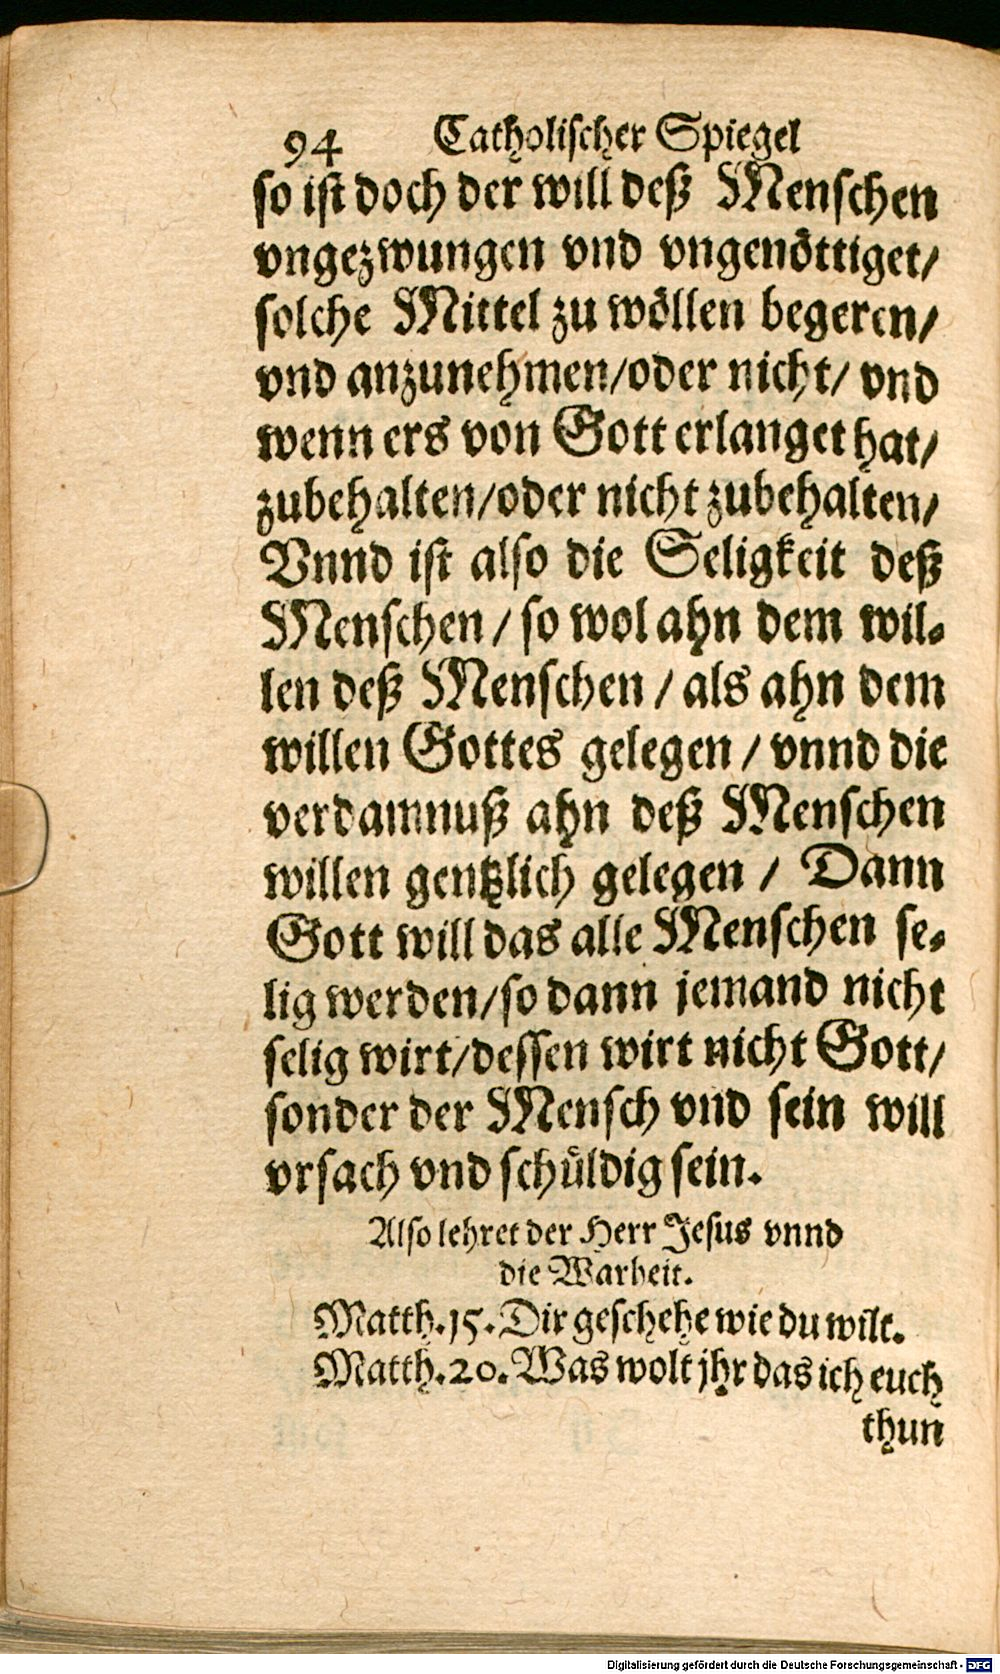 94 Catholischer Spiegel
so ist doch der will deß Menschen
vngezwungen vnd vngenöttiget/
solche Mittel zu wöllen begeren/
vnd anzunehmen/oder nicht/ vnd
wenn ers von Gott erlanget hat/
zubehalten/oder nicht zubehalten/
Vnnd ist also die Seligkeit deß
Menschen / so wol ahn dem wil⸗
len deß Menschen / als ahn dem
willen Gottes gelegen / vnnd die
verdamnuß ahn deß Menschen
willen gentzlich gelegen / Dann
Gott will das alle Menschen se⸗
lig werden/so dann jemand nicht
selig wirt/dessen wirt nicht Gott/
sonder der Mensch vnd sein will
vrsach vnd schüldig sein.
Also lehret der Herr Jesus vnnd
die Warheit.
Matth.15. Dir geschehe wie du wilt.
Matth.20. Was wolt jhr das ich euch
thun
Digitalisierung gefördert durch die Deutsche Forschungsgemeinschaft - DFG